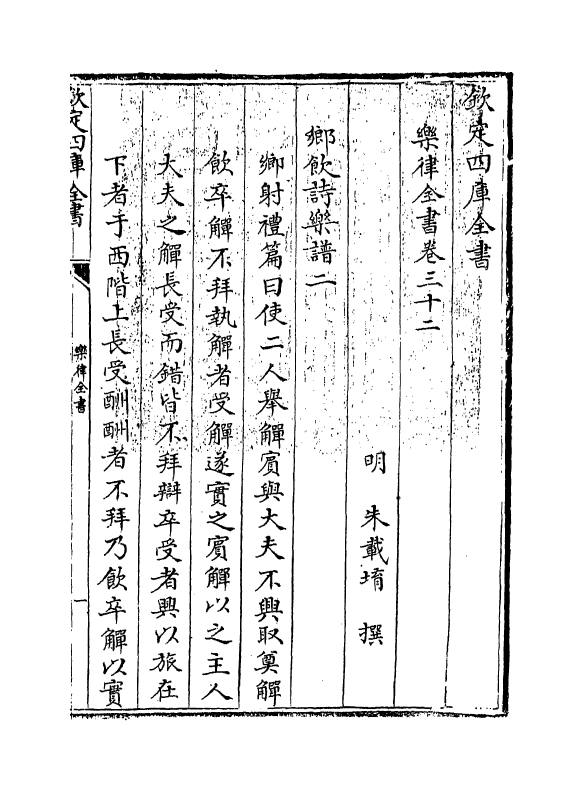 欽定四庫全書
樂律全書卷三十二
明 朱載堉 撰
鄉飲詩樂譜二
鄉射禮篇曰使二人舉觶賔與大夫不興取奠觶
飲卒觶不拜執觶者受觶遂實之賔觶以之主人
大夫之觶長受而錯皆不拜辯卒受者興以旅在
下者于西階上長受酬酬者不拜乃飲卒觶以實
欽定四庫全書
樂律全書
一